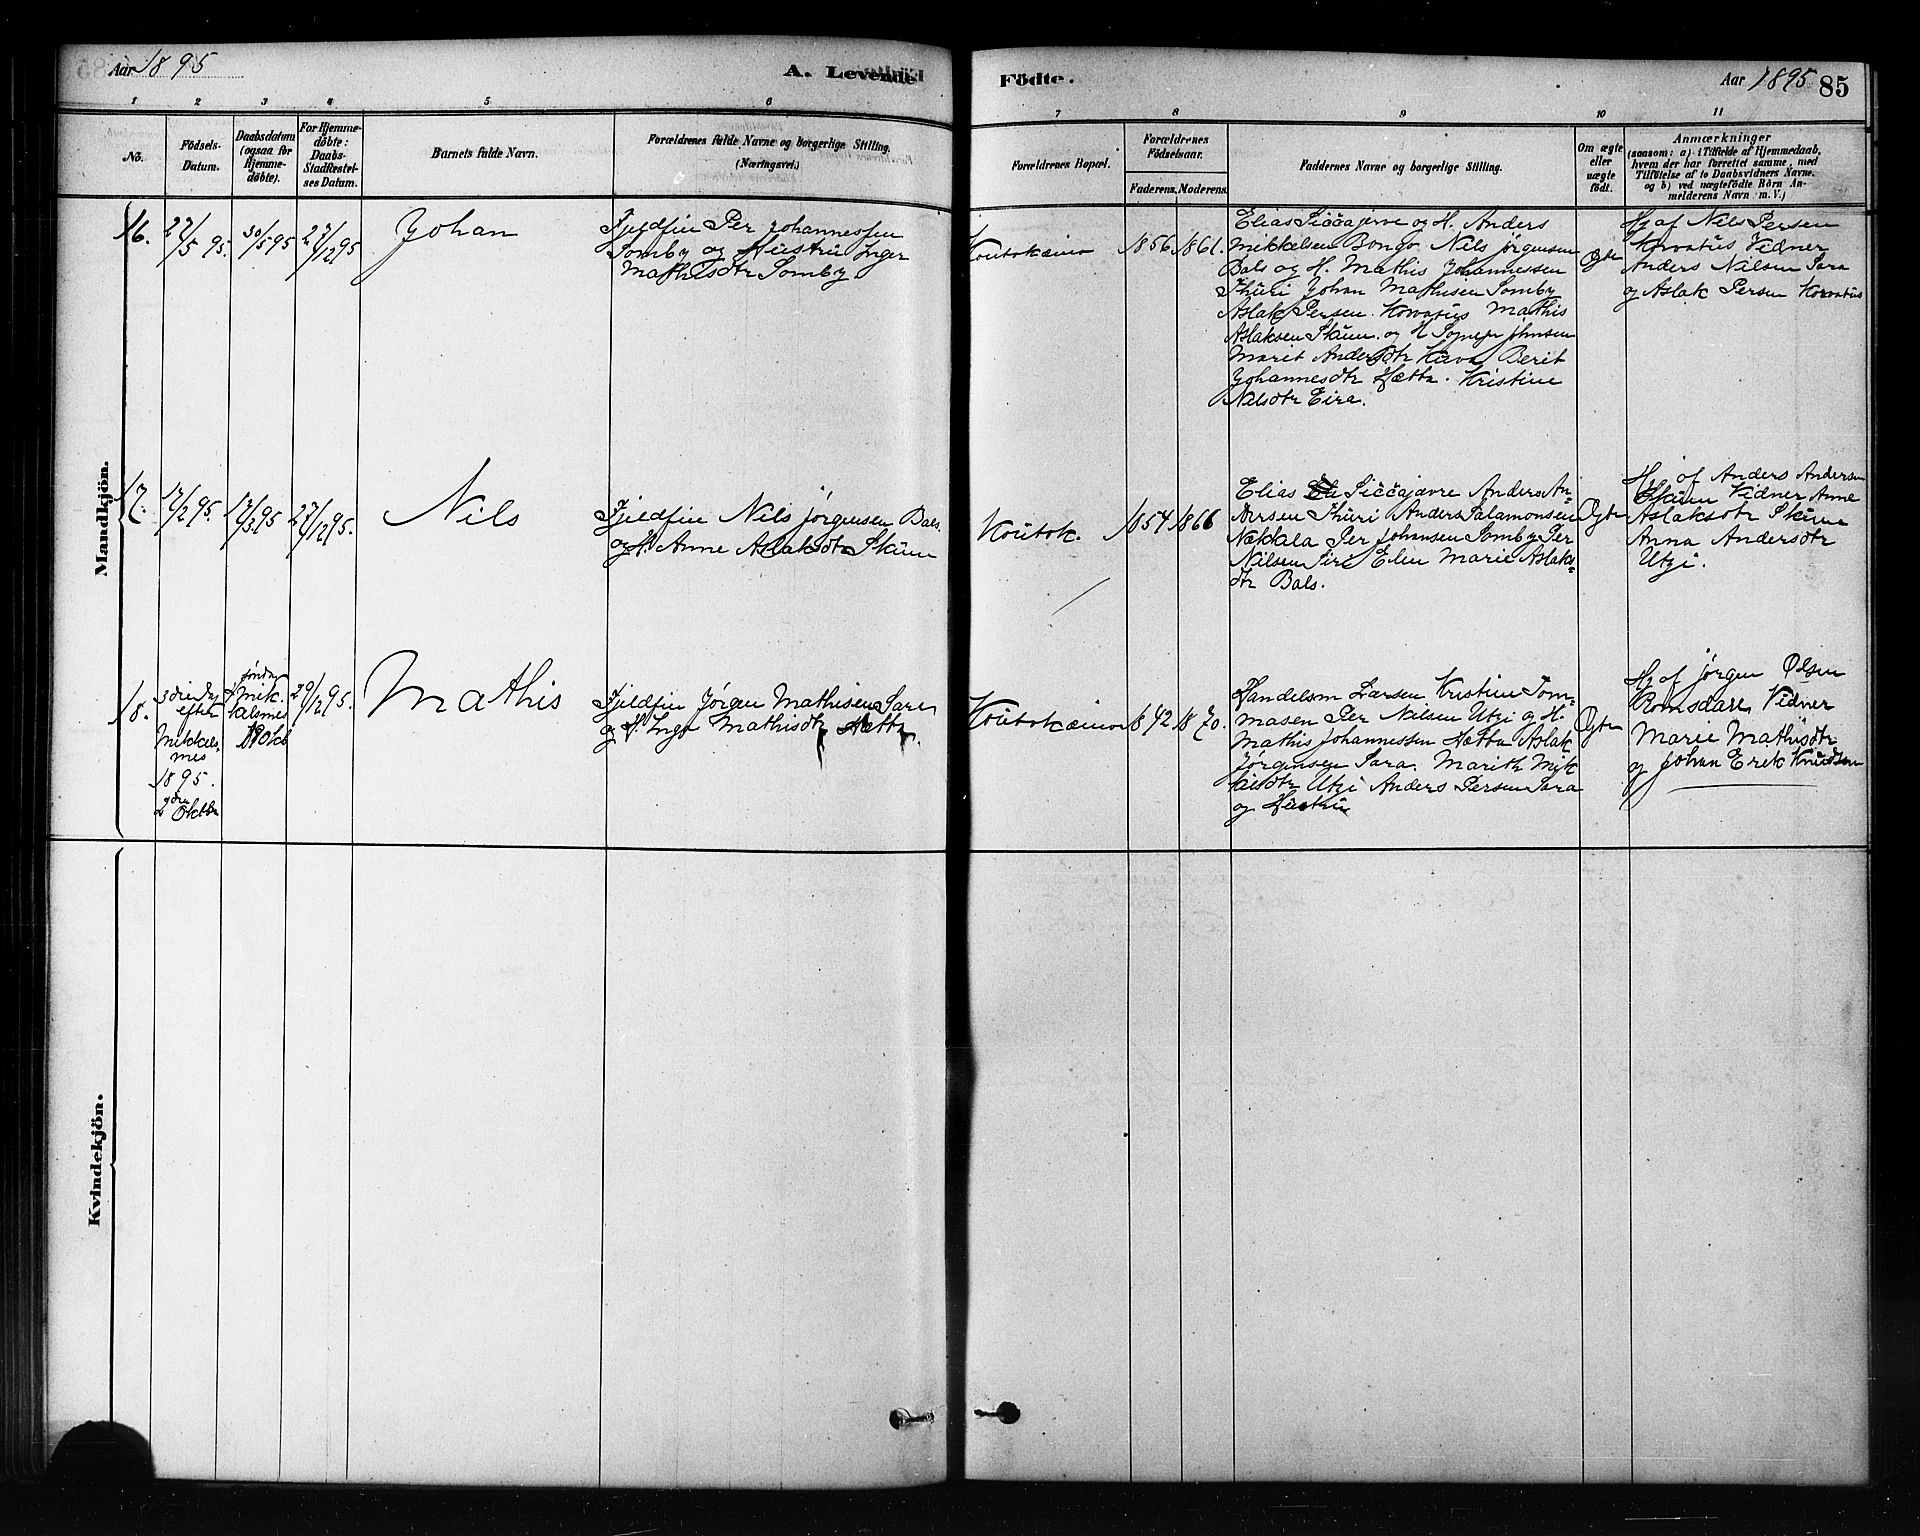 Aar 1895
A. Levende
Födte.
Aar 1895 85
1 2 3 4 5 6 7 8 9 10 11
No.
Födsels-
Datum.
Daabsdatum
(ogsaa for
Hjemme-
döbte).
For Hjemme-
döbte:
Daabs-
Stadfæstel-
ses Datum.
Barnets fulde Navn.
Forældrenes fulde Navne og borgerlige Stilling.
(Næringsvei.)
Forældrenes Bopæl.
Forældrenes
Födselsaar.
Faderens. Moderens.
Faddernes Navne og borgerlige Stilling.
Om ægte
eller
uægte
födt.
Anmærkninger
(saasom: a) i Tilfælde af Hjemmedaab,
hvem der har forrettet samme, med
Tilföielse af to Daabsvidners Navne.
og b) ved uægtefödte Börn An-
melderens Navn m. V.)
Mandkjön.
16.
22/5 95.
30/5 95
27/12 95
Johan
Fjeldfin Per Johannessen
Somby og Hustru Inger
Mathisdtr Somby
Koutokeino
1856
1861.
Elias Siččajavre og H. Anders
Mikkelsen Bongo Nils Jørgensen
Bals og H. Mathis Johannessen
Thuri Johan Mathisen Somby
Aslak Persen Korvatus Mathis
Aslaksen Skum og H Johnsen
Marit Andersdtr Kava Berit
Johannesdtr Hætta. Kristine
Nilsdtr Eira.
Ægte
Hj af Nils Persen
Korvatus Vidner
Anders Nilsen Sara
og Aslak Persen Korvatus
17.
17/2 95.
17/3 95
27/12 95.
Nils
Fjeldfin Nils Jørgensen Bals.
og H. Anne Aslaksdtr Skum
Koutok.
1854
1866
Elias Siččajavre Anders An-
dersen Thuri Anders Salamonsen
Nækkela Per Johansen Somby Per
Nilsen Siri Elen Marie Aslaks-
dtr Bals.
Ægte
Hj af Anders Andersen
Skum Vidner Anne
Aslaksdtr Skum
Anna Andersdtr
Utzi.
18.
3die Dag
efter
Mikkels-
mes
1895.
2den Oktbr
Mik.
kelsmes
29/12 95.
Mathis
Fjeldfin Jørgen Mathisen Sara
og H. Inga Mathisdtr Hætta.
Koutokeino
1842
1870.
Handelsm Larsen Kristine Tom-
masen Per Nilsen Utzi og H.
Mathis Johannessen Hætta Aslak
Jørgensen Sara. Marith Mik
kelsdtr Utzi Anders Persen Sara
og Hustru
Ægte
Hj af Jørgen Olsen
Romsdare, Vidner
Marie Mathisdtr
og Johan Erek Knudsen
Kvindekjön.